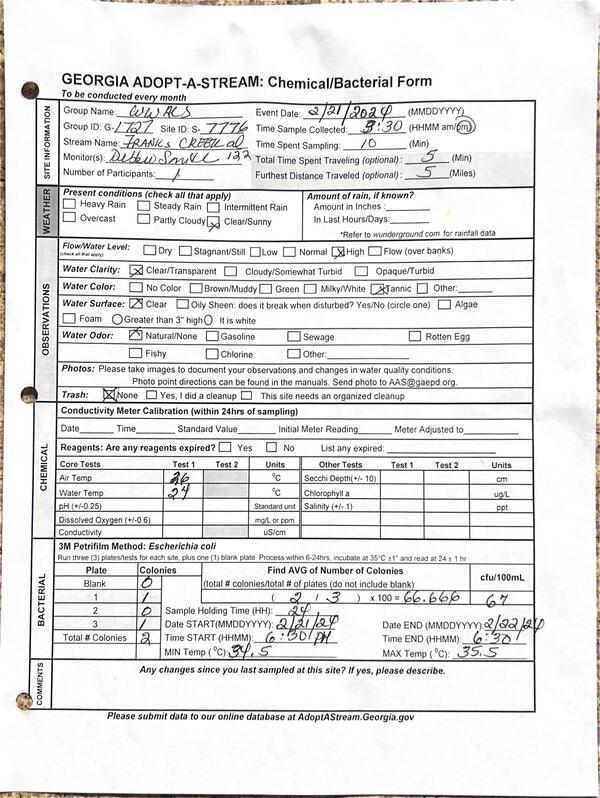 GEORGIA ADOPT-A-STREAM: Chemical/Bacterial Form
To be conducted every month
SITE INFORMATION
Group Name: WWALS Event Date: 2/21/2024 (MMDDYYYY)
Group ID: G-1727 Site ID: S-7776 Time Sample Collected: 3:30 (HHMM am/pm)
Stream Name: FRANKS CREEK at Time Spent Sampling: 10 (Min)
Monitor(s): 122 Total Time Spent Traveling (optional): 5 (Min)
Number of Participants: 1 Furthest Distance Traveled (optional): 5 (Miles)
WEATHER
Present conditions (check all that apply) Amount of rain, if known?
Heavy Rain Steady Rain Intermittent Rain Amount in Inches:
Overcast Partly Cloudy X Clear/Sunny In Last Hours/Days:
*Refer to wunderground.com for rainfall data
OBSERVATIONS
Flow/Water Level: Dry Stagnant/Still Low Normal X High Flow (over banks)
(check all that apply)
Water Clarity: X Clear/Transparent Cloudy/Somewhat Turbid Opaque/Turbid
Water Color: No Color Brown/Muddy Green Milky/White X Tannic Other:
Water Surface: X Clear Oily Sheen: does it break when disturbed? Yes/No (circle one) Algae
Foam Greater than 3" high It is white
Water Odor: X Natural/None Gasoline Sewage Rotten Egg
Fishy Chlorine Other:
Photos: Please take images to document your observations and changes in water quality conditions.
Photo point directions can be found in the manuals. Send photo to AAS@gaepd.org.
Trash: X None Yes, I did a cleanup This site needs an organized cleanup
CHEMICAL
Conductivity Meter Calibration (within 24hrs of sampling)
Date Time Standard Value Initial Meter Reading Meter Adjusted to
Reagents: Are any reagents expired? Yes No List any expired:
Core Tests Test 1 Test 2 Units Other Tests Test 1 Test 2 Units
Air Temp 26 °C Secchi Depth(+/- 10) cm
Water Temp 24 °C Chlorophyll a ug/L
pH (+/-0.25) Standard unit Salinity (+/- 1) ppt
Dissolved Oxygen (+/-0.6) mg/L or ppm
Conductivity uS/cm
BACTERIAL
3M Petrifilm Method: Escherichia coli
Run three (3) plates/tests for each site, plus one (1) blank plate. Process within 6-24hrs, incubate at 35°C ±1° and read at 24 ± 1 hr
Plate Colonies Find AVG of Number of Colonies cfu/100mL
Blank 0 (total # colonies/total # of plates (do not include blank)
1 1 ( 2 / 3 ) x 100 = 66.666 67
2 0 Sample Holding Time (HH): 24
3 1 Date START(MMDDYYYY): 2/21/24 Date END (MMDDYYYY): 2/22/24
Total # Colonies 2 Time START (HHMM): 6:30 PM Time END (HHMM): 6:30
MIN Temp (°C): 34.5 MAX Temp (°C): 35.5
COMMENTS
Any changes since you last sampled at this site? If yes, please describe.
Please submit data to our online database at AdoptAStream.Georgia.gov